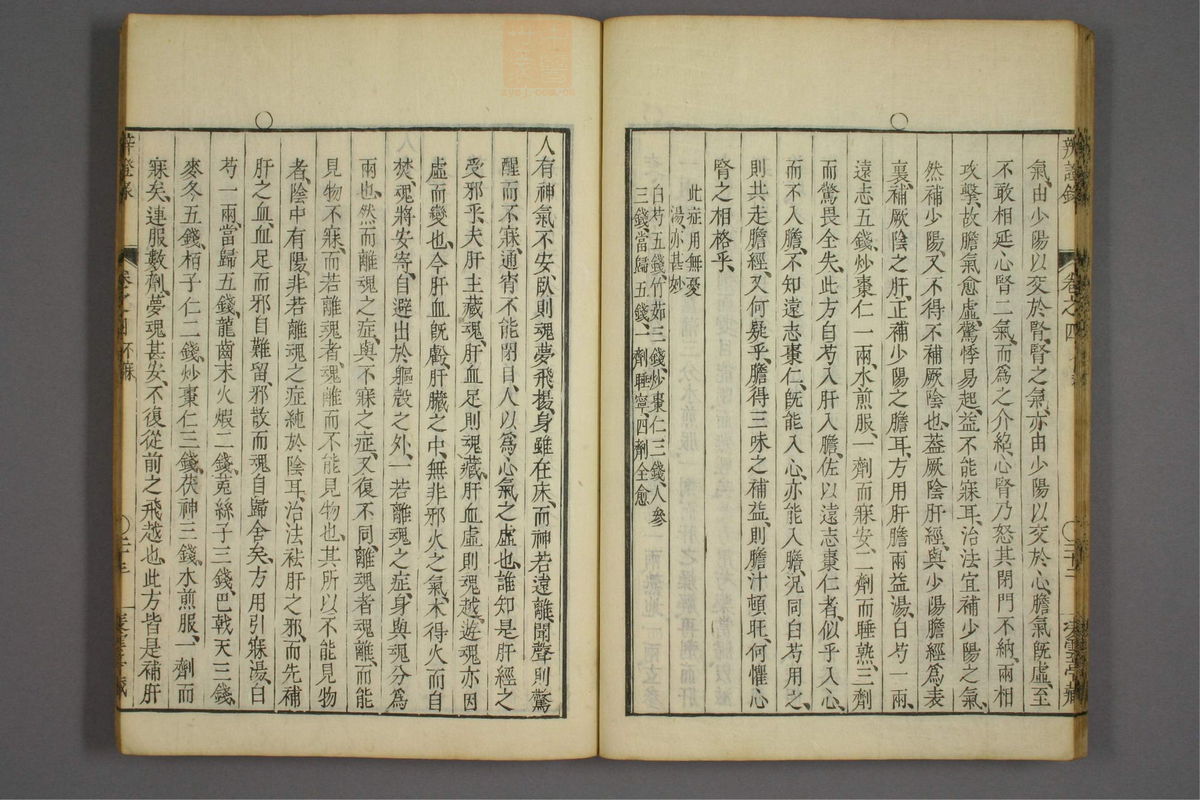 辨證錄 卷之四
氣由少陽以交於腎腎之氣亦由少陽以交於心膽氣既虛至
不敢相延心腎二氣而為之介紹心腎乃怒其閉門不納兩相
攻擊故膽氣愈虛驚悸易起益不能寐耳治法宜補少陽之氣
然補少陽又不得不補厥陰也葢厥陰肝經與少陽膽經為表
裏補厥陰之肝正補少陽之膽耳方用肝膽兩益湯白芍一兩
遠志五錢炒棗仁一兩水煎服一劑而寐安二劑而睡熟三劑
而驚畏全失此方白芍入肝入膽佐以遠志棗仁者似乎入心
而不入膽不知遠志棗仁既能入心亦能入膽況同白芍用之
則共走膽經又何疑乎膽得三味之補益則膽汁頓旺何懼心
腎之相格乎
此症用無憂
湯亦甚妙
白芍五錢竹茹三錢炒棗仁三錢人參
三錢當歸五錢一劑睡寧四劑全愈
人有神氣不安臥則魂夢飛揚身雖在床而神若遠離聞聲則驚
醒而不寐通宵不能閉目人以為心氣之虛也誰知是肝經之
受邪乎夫肝主藏魂肝血足則魂藏肝血虛則魂越遊魂亦因
虛而變也今肝血既虧肝臟之中無非邪火之氣木得火而自
焚魂將安寄自避出於軀殼之外一若離魂之症身與魂分為
兩也然而離魂之症與不寐之症又復不同離魂者魂離而能
見物不寐而若離魂者魂離而不能見物也其所以不能見物
者陰中有陽非若離魂之症純於陰耳治法祛肝之邪而先補
肝之血血足而邪自難留邪散而魂自歸舍矣方用引寐湯白
芍一兩當歸五錢龍齒末火煆二錢菟絲子三錢巴戟天三錢
麥冬五錢栢子仁二錢炒棗仁三錢茯神三錢水煎服一劑而
寐矣連服數劑夢魂甚安不復從前之飛越也此方皆是補肝
卷之四 不寐